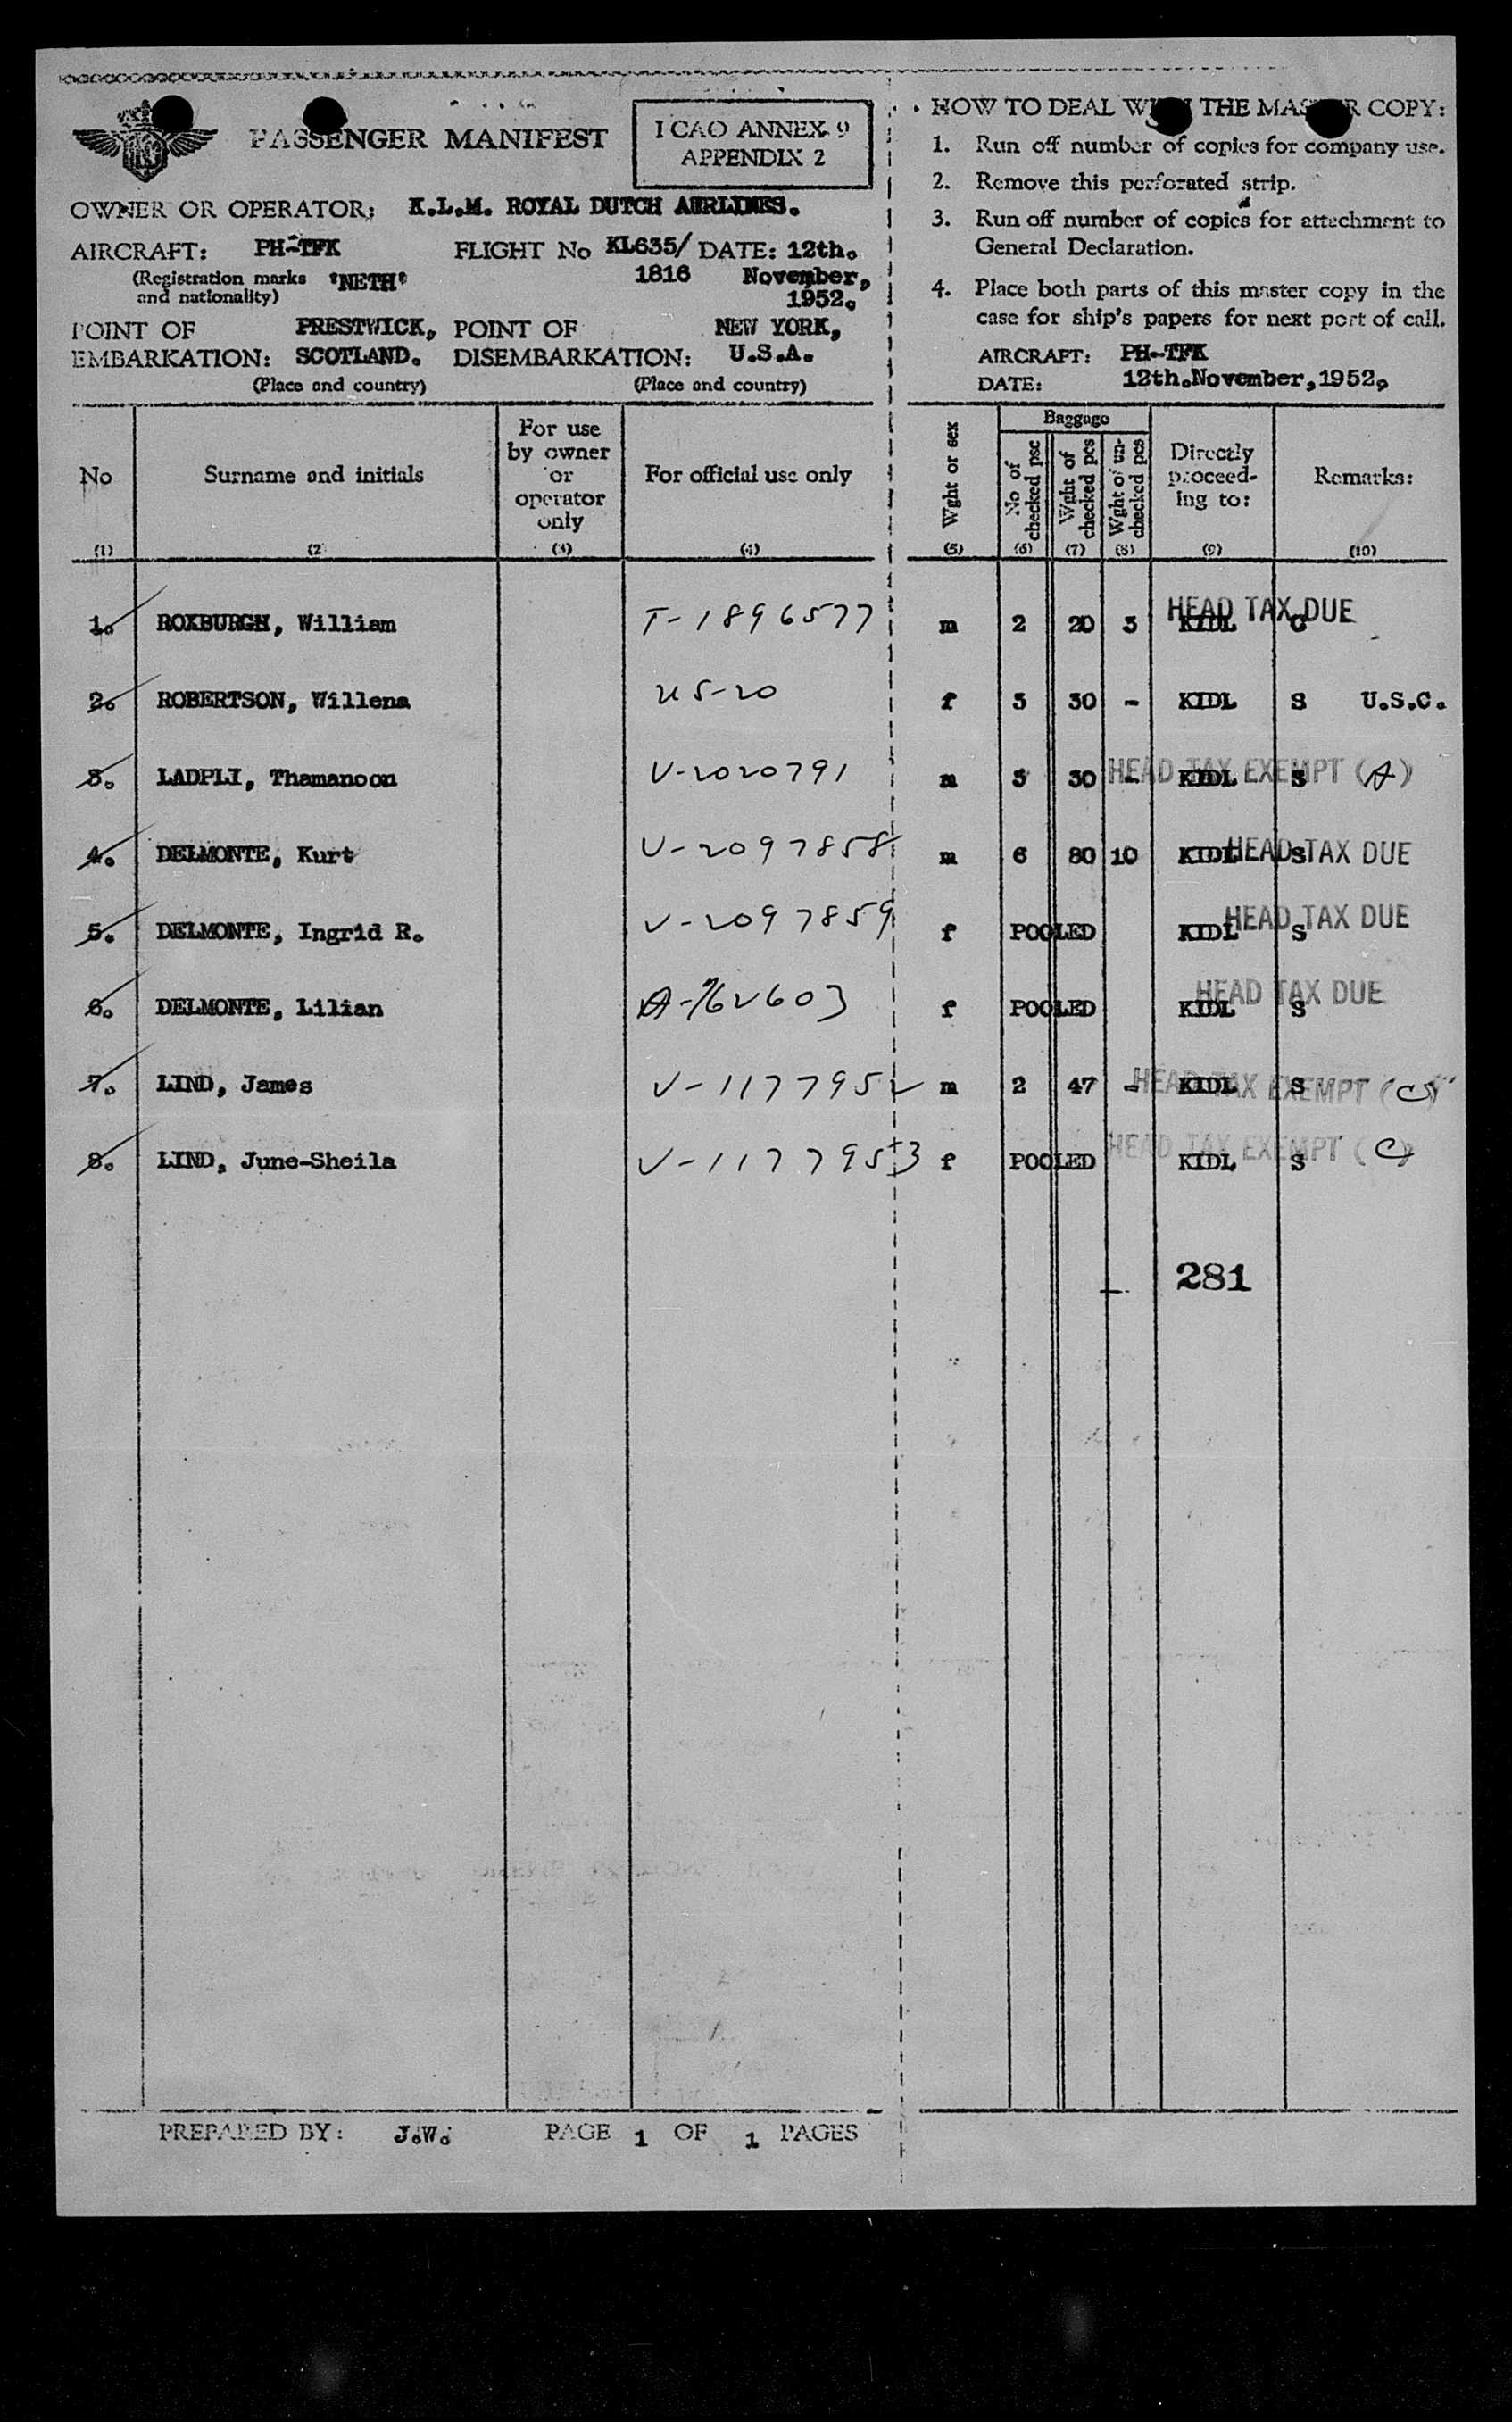 PASSENGER MANIFEST
ICAO ANNEX 9
APPENDIX 2
OWNER OR OPERATOR: K.L.M. ROYAL DUTCH AIRLINES.
AIRCRAFT: PH-TFK FLIGHT No KL635/ DATE: 12th.
(Registration marks "NETH" 1816 November,
and nationality) 1952.
POINT OF PRESTWICK, POINT OF NEW YORK,
EMBARKATION: SCOTLAND. DISEMBARKATION: U.S.A.
(Place and country) (Place and country)
HOW TO DEAL THE COPY:
1. Run off number of copies for company use.
2. Remove this perforated strip.
3. Run off number of copies for attachment to
General Declaration.
4. Place both parts of this master copy in the
case for ship's papers for next port of call.
AIRCRAFT: PH-TFK
DATE: 12th.November,1952,
No
(1)
Surname and initials
(2
For use
by owner
or
operator
only
(3)
For official use only
(4)
Wght or sex
(5)
Baggage
No of
checked psc
(6)
Wght of
checked pcs
(7)
Wght of un-
checked pcs
(8)
Directly
proceed-
ing to:
(9)
Remarks:
(10)
1. ROXBURGH, William T-1896577 m 2 20 3 KIDL HEAD TAX DUE
2. ROBERTSON, Willena US-20 f 3 30 - KIDL S U.S.C.
3. LADPLI, Thamanoon V-2020791 m 3 30 - KIDL S HEAD TAX EXEMPT (A)
4. DELMONTE, Kurt V-2097858 m 6 80 10 KIDL S HEAD TAX DUE
5. DELMONTE, Ingrid R. V-2097859 f POOLED KIDL S HEAD TAX DUE
6. DELMONTE, Lilian f POOLED KIDL S HEAD TAX DUE
7. LIND, James V-1177952 m 2 47 - KIDL S HEAD TAX EXEMPT (C)
8. LIND, June-Sheila V-1177953 f POOLED KIDL S HEAD TAX EXEMPT (C)
281
PREPARED BY: J.W. PAGE 1 OF 1 PAGES